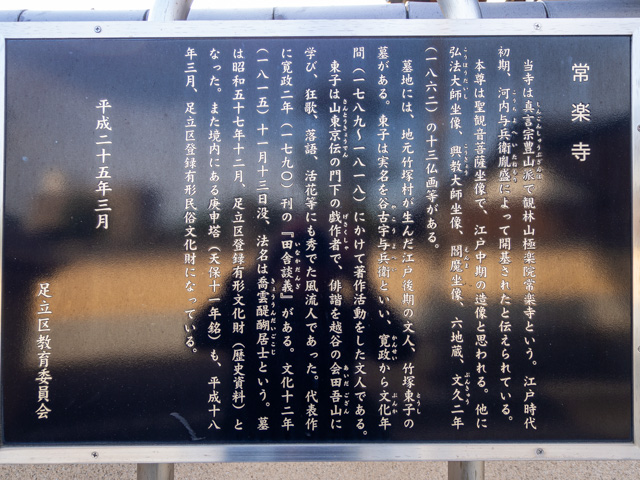 常楽寺
当寺は真言宗豊山派で観林山極楽院常楽寺という。江戸時代
初期、河内与兵衛胤盛によって開基されたと伝えられている。
本尊は聖観音菩薩坐像で、江戸中期の造像と思われる。他に
弘法大師坐像、興教大師坐像、閻魔坐像、六地蔵、文久二年
(一八六二)の十三仏画等がある。
墓地には、地元竹塚村が生んだ江戸後期の文人、竹塚東子の
墓がある。東子は実名を谷古宇与兵衛といい、寛政から文化年
間(一七八九〜一八一八)にかけて著作活動をした文人である。
東子は山東京伝の門下の戯作者で、俳諧を越谷の会田吾山に
学び、狂歌、落語、活花等にも秀でた風流人であった。代表作
に寛政二年(一七九〇)刊の『田舎談義』がある。文化十二年
(一八一五)十一月十三日没、法名は喬雲醍醐居士という。墓
は昭和五十七年十二月、足立区登録有形文化財(歴史資料)と
なった。また境内にある庚申塔(天保十一年銘)も、平成十八
年三月、足立区登録有形民俗文化財になっている。
平成二十五年三月
足立区教育委員会